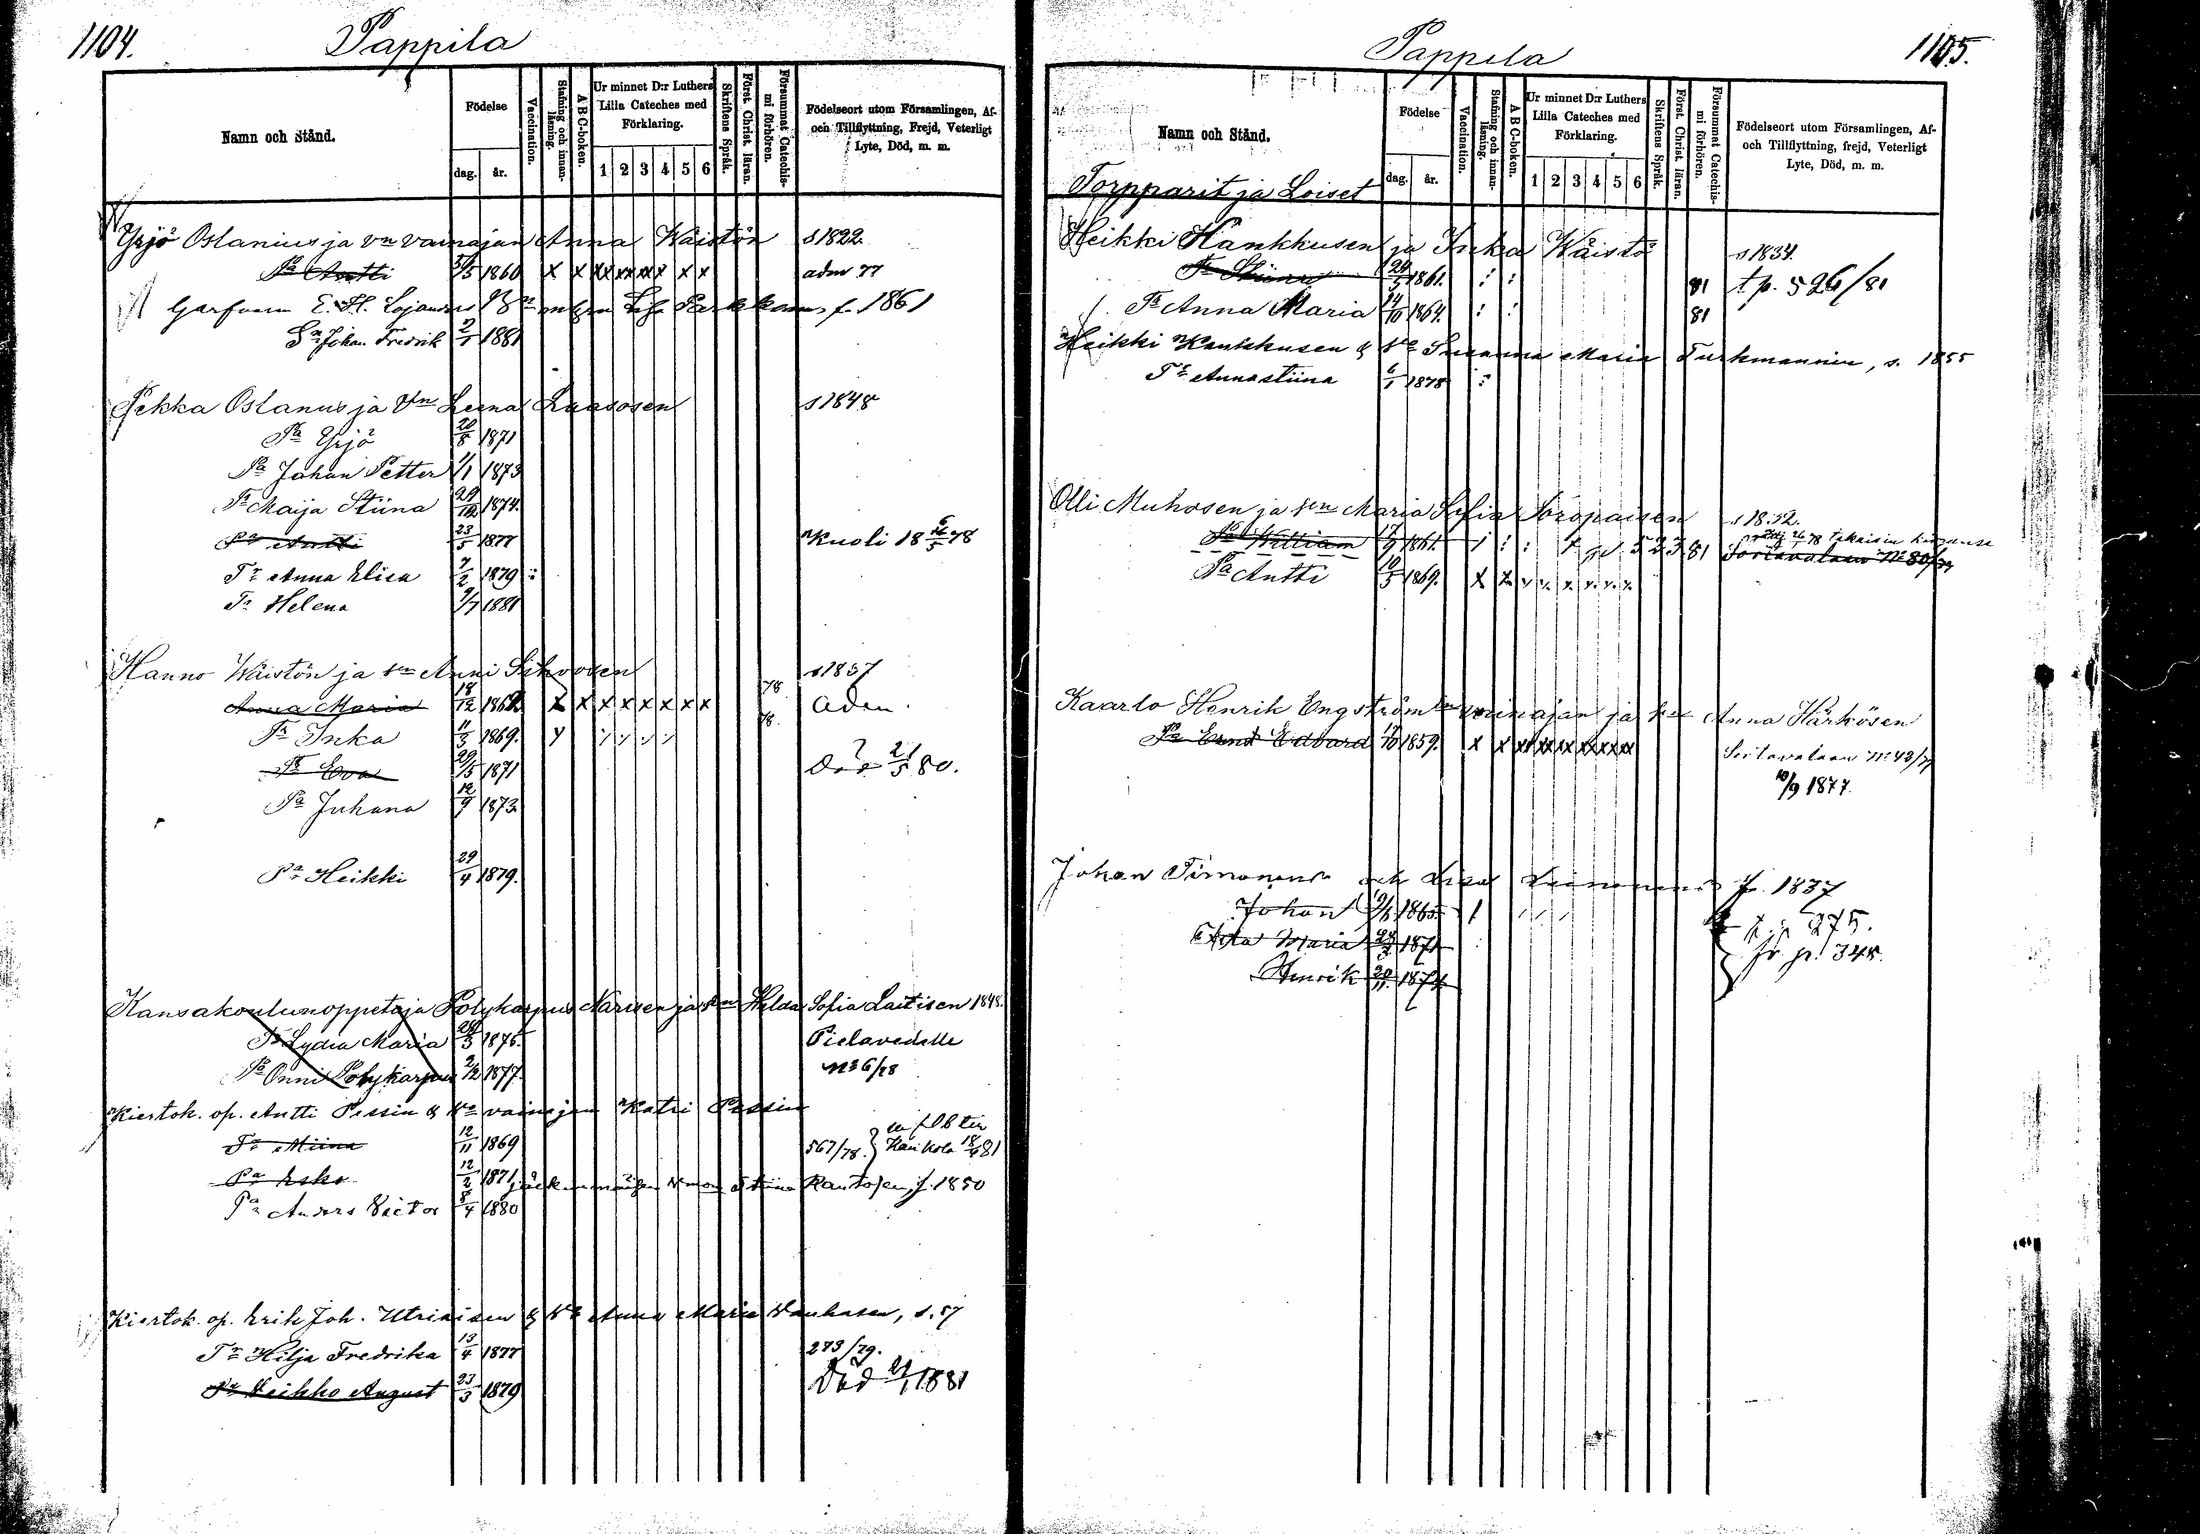 1104.
Pappila
Namn och Stånd.
Födelse
dag.
år.
Vaccination.
Stafning och innanläsning.
A B C-boken.
Ur minnet D:r Luthers Lilla Cateches med Förklaring.
1 2 3 4 5 6
Skriftens Språk.
Först. Christ. läran.
Försummat Catechismi förhören.
Födelseort utom Församlingen, Af- och Tillflyttning, Frejd, Veterligt Lyte, Död, m. m.
Yrjö Ostanius ja vn vainajan Anna Wäistön s 1822
Pa Antti 1860 x x xx xx xx x x adm 77
E. H. Lojander 1861
Sn Johan Fredrik 2/1 1881
Pekka Ostanus ja Vn Leena Laasosen s 1848
Pa Yrjö 20/8 1871
Pa Johan Petter 1/1 1873
Tr Maija Stiina 1874.
Pa Antti 23/5 1877 Kuoli 18 78
Tr Anna Elisa 7/2 1879
Tr Helena 9/7 1881
Hanno Wäistön ja vn Anni Sihvosen s 1837
Anna Maria 18/12 186 x x x x x x x x 78 adm.
Tr Inka 11/3 1869. 78.
Tr Eva 29/5 1871 Död 21/5 80.
Pa Juhana 12/9 1873
Pa Heikki 29/4 1879.
Kansakoulunoppetaja Polykarpus Narisen ja vn Helda Sofia Laitisen 1848.
Tr Lydia Maria 1875. Pielavedelle
Pa Onni Polykarpus 2/12 1877. No 6/78
Kiertok. op. Antti Pessin & Vn vainajan Katri Pessin
Tr Miina 12/11 1869 567/78.
Pa Esko 12/2 1871 Stiina f. 1850
Pa Anders Victor 8/4 1880
Kiertok. op. Erik Joh. Utriaisen & Vn Anna Maria Wanhasen, s. 57
Tr Hilja Fredrika 13/4 1877 273/79.
Pa Veikko August 23/3 1879 Död 1881
1105.
Pappila
Namn och Stånd.
Födelse
dag.
år.
Vaccination.
Stafning och innanläsning.
A B C-boken.
Ur minnet D:r Luthers Lilla Cateches med Förklaring.
1 2 3 4 5 6
Skriftens Språk.
Först. Christ. läran.
Försummat Catechismi förhören.
Födelseort utom Församlingen, Af- och Tillflyttning, frejd, Veterligt Lyte, Död, m. m.
Torpparit ja Loiset
Heikki Hankkusen ja Inka Wäistö s 1834.
Tr Stiina 1861. 81 t.p. 526/81
Tr Anna Maria 14/10 1864. 81
Heikki Hankkusen & Vn Susanna Maria Turkmannin, s. 1855
Tr Anna Stiina 6/1 1878
Olli Muhosen ja vn Maria Sofia Soropaisen s 1832.
Pa William 1861. 81 Sortavalaan
Pa Antti 10/5 1869.
Kaarlo Henrik Engström vainajan ja vn Anna Härkösen
Pa Ernst Edvard 1859. x x xx xx xx xxxxx Sortavalaan No 43/77
10/9 1877.
Johan Timonen och Lisa f. 1837
Johan 1865
Maria 1871
Henrik 1874
275.
fr p. 345.